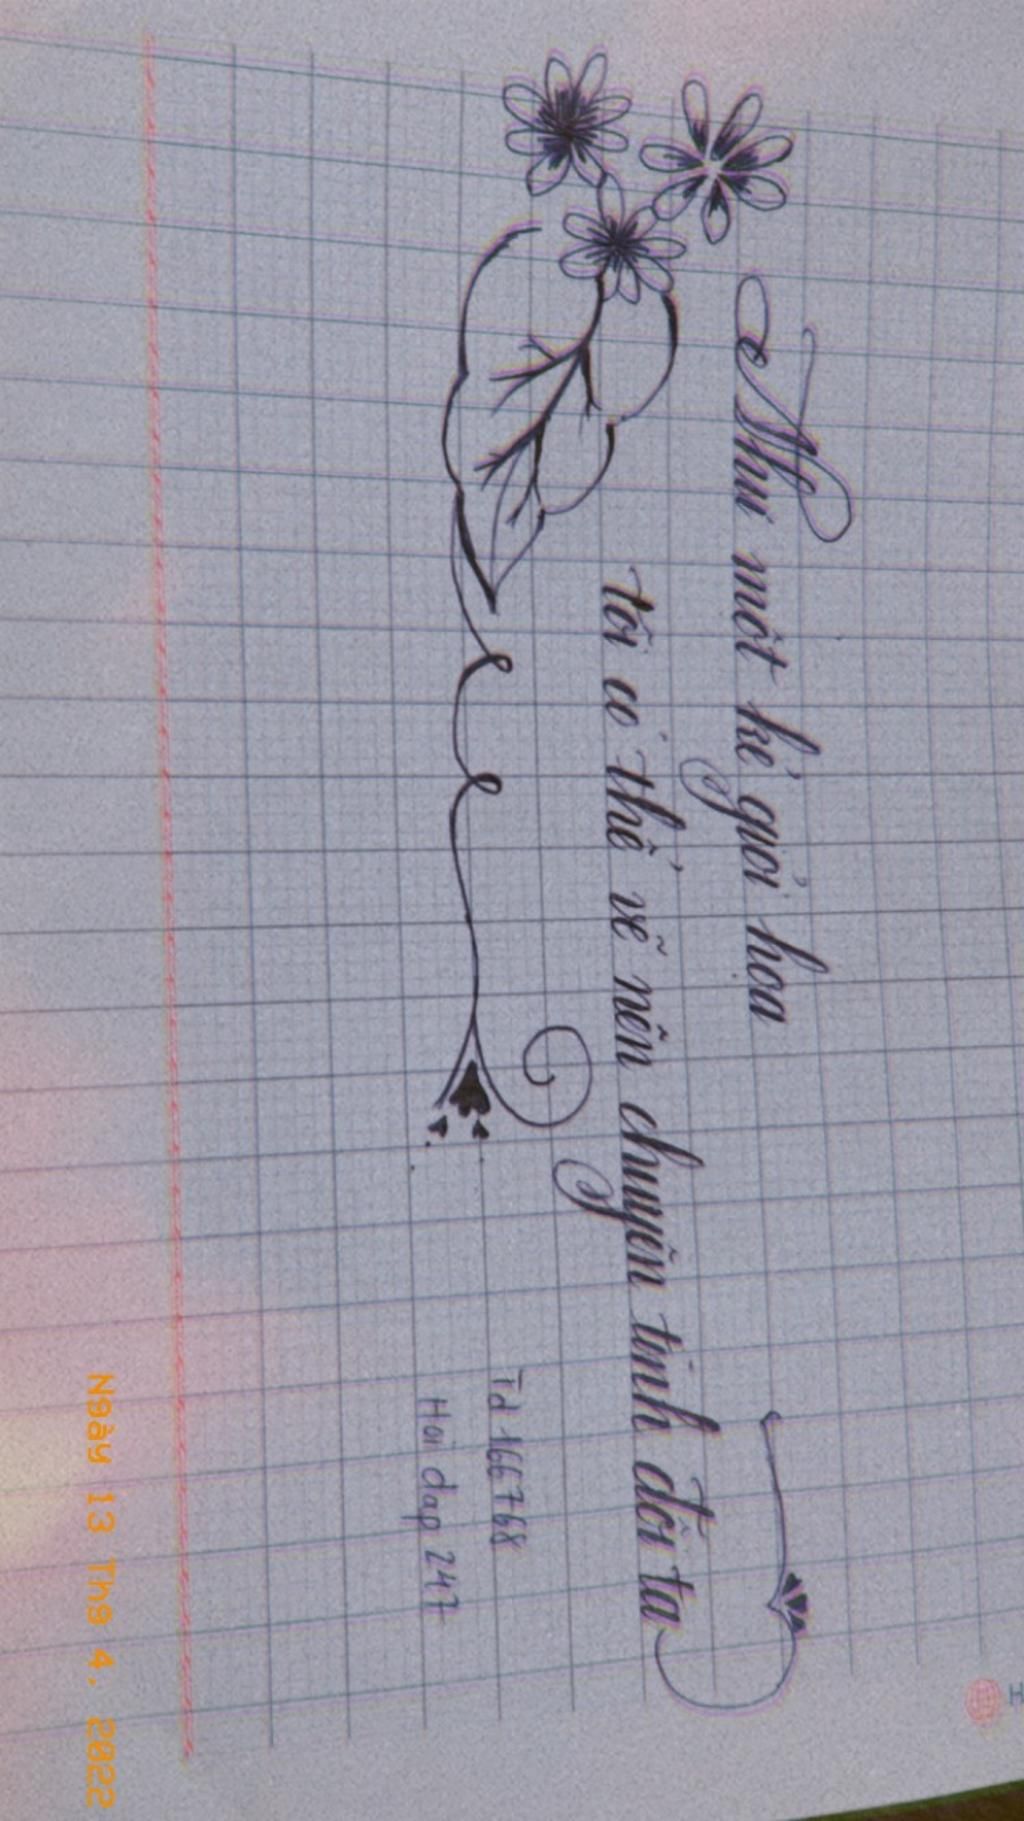 Như một kẻ giỏi họa
tôi có thể vẽ nên chuyện tình đôi ta
Id 166768
Hoi dap 247
Ngày 13 Th9 4, 2022
H